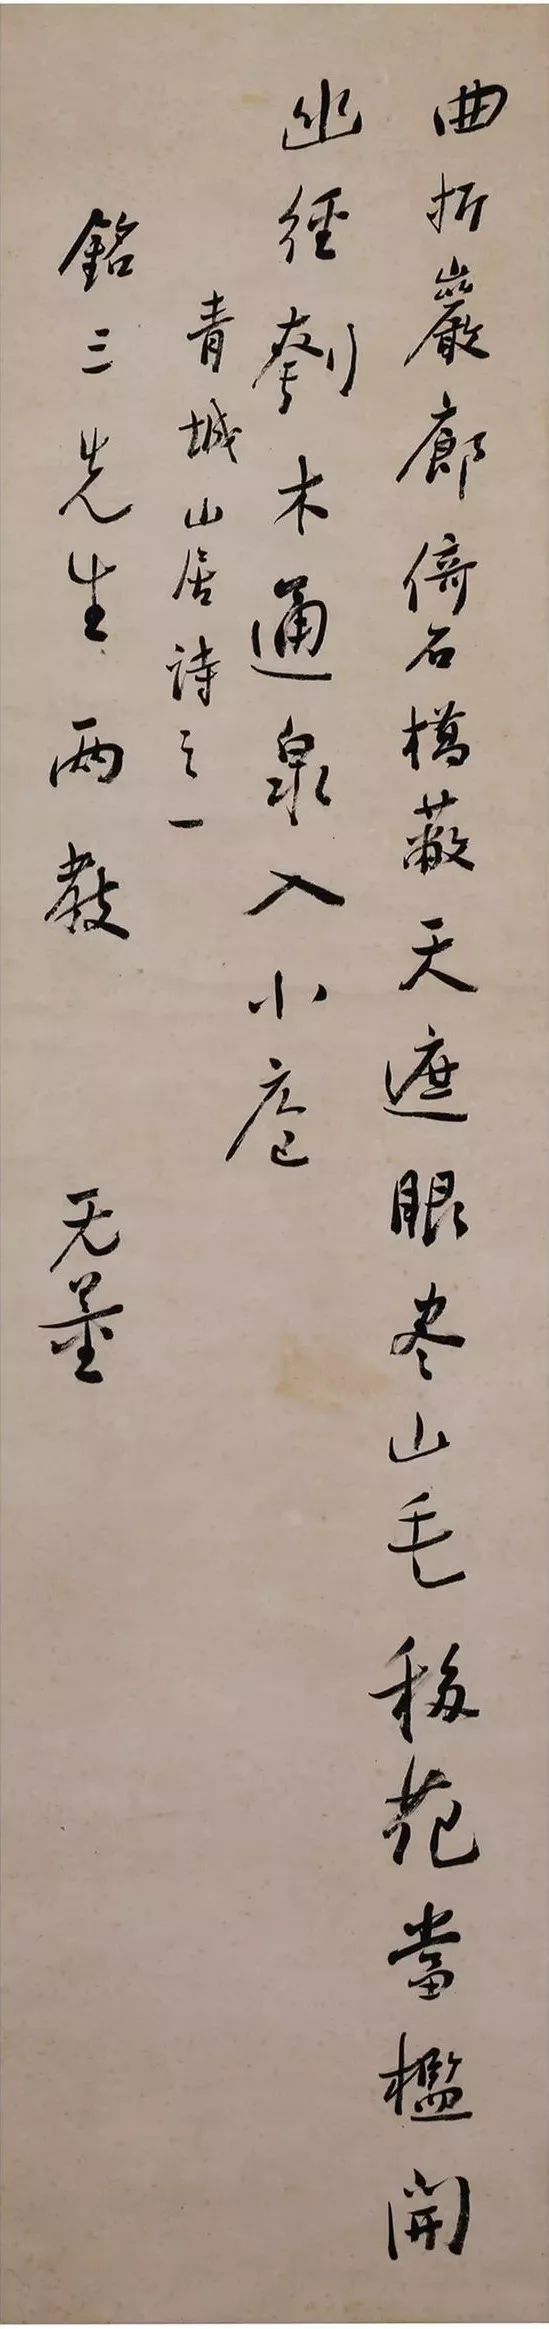 曲折巖廊倚石橋蔽天遮眼盡山毛移花當檻開
幽徑刳木通泉入小庖
青城山居詩之一
銘三先生兩教 无量